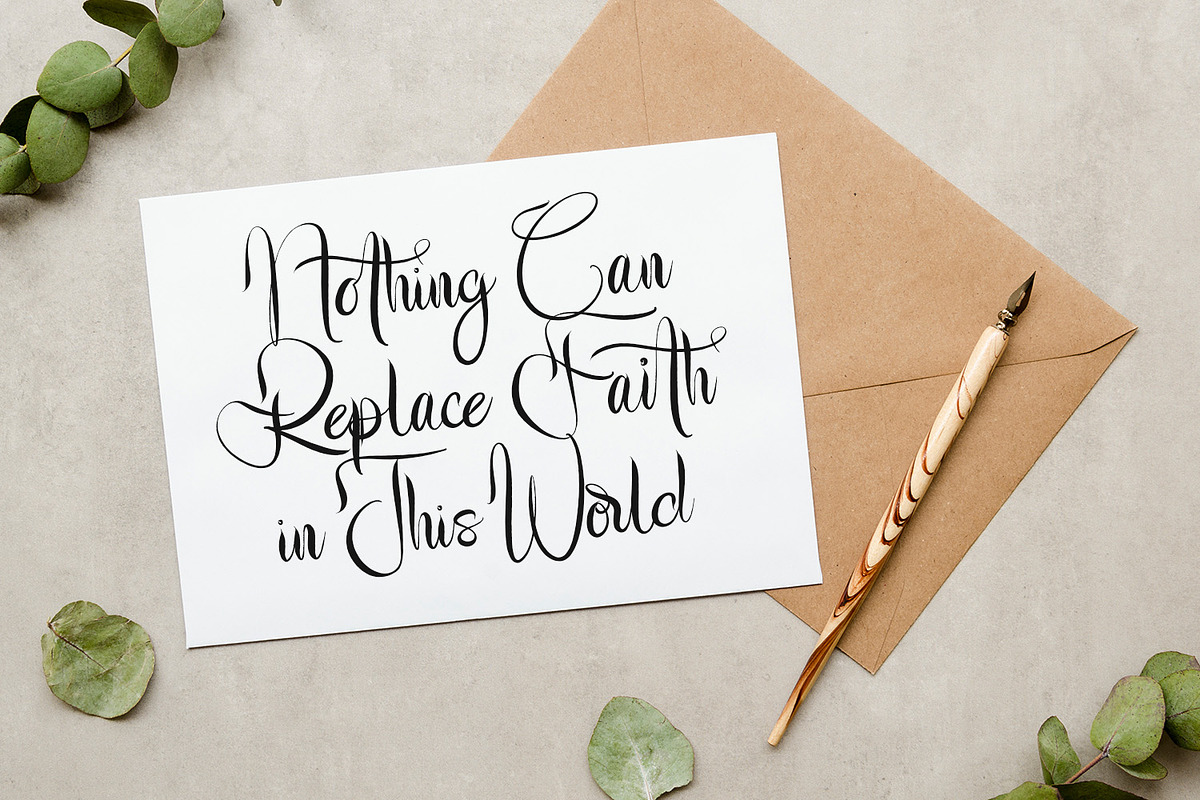 Nothing Can
Replace Faith
in This World